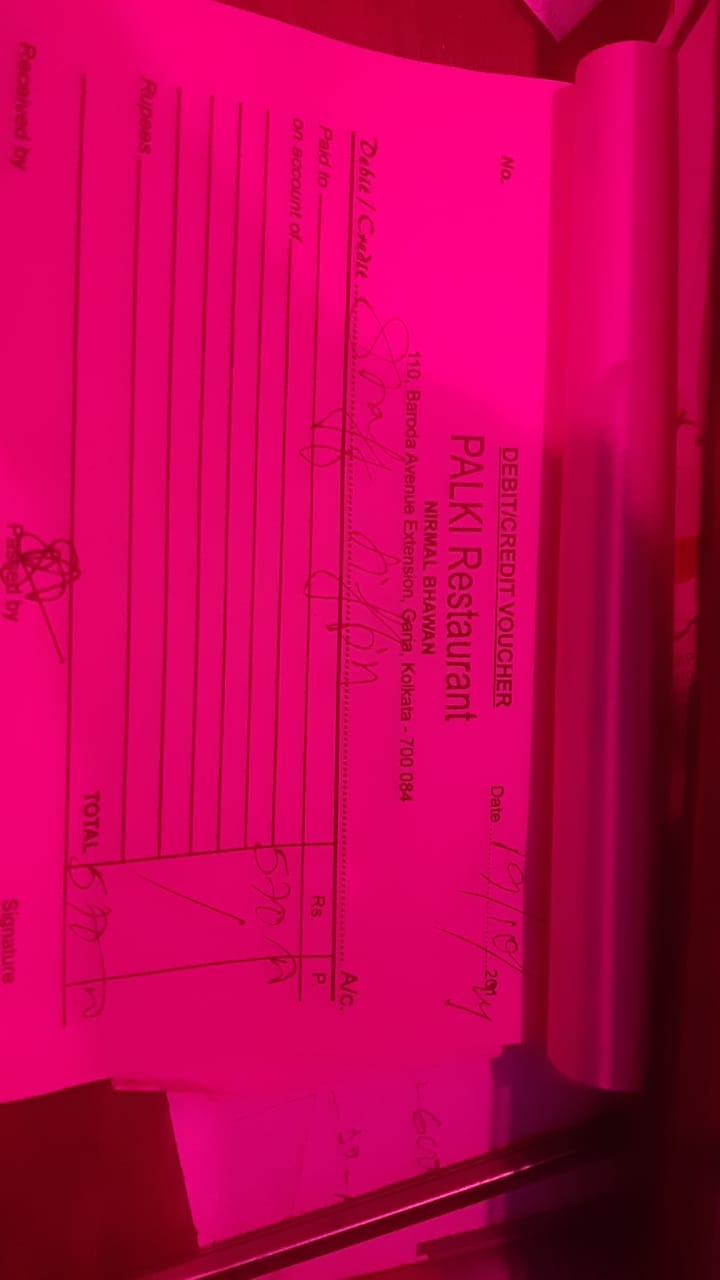 DEBIT/CREDIT VOUCHER
No.
Date 19/10/2024
PALKI Restaurant
NIRMAL BHAWAN
110, Baroda Avenue Extension, Garia, Kolkata - 700 084
Debit / Credit Staff tiffin A/c.
Paid to Rs. P.
on account of 570
Rupees
TOTAL 570
Received by Passed by Signature